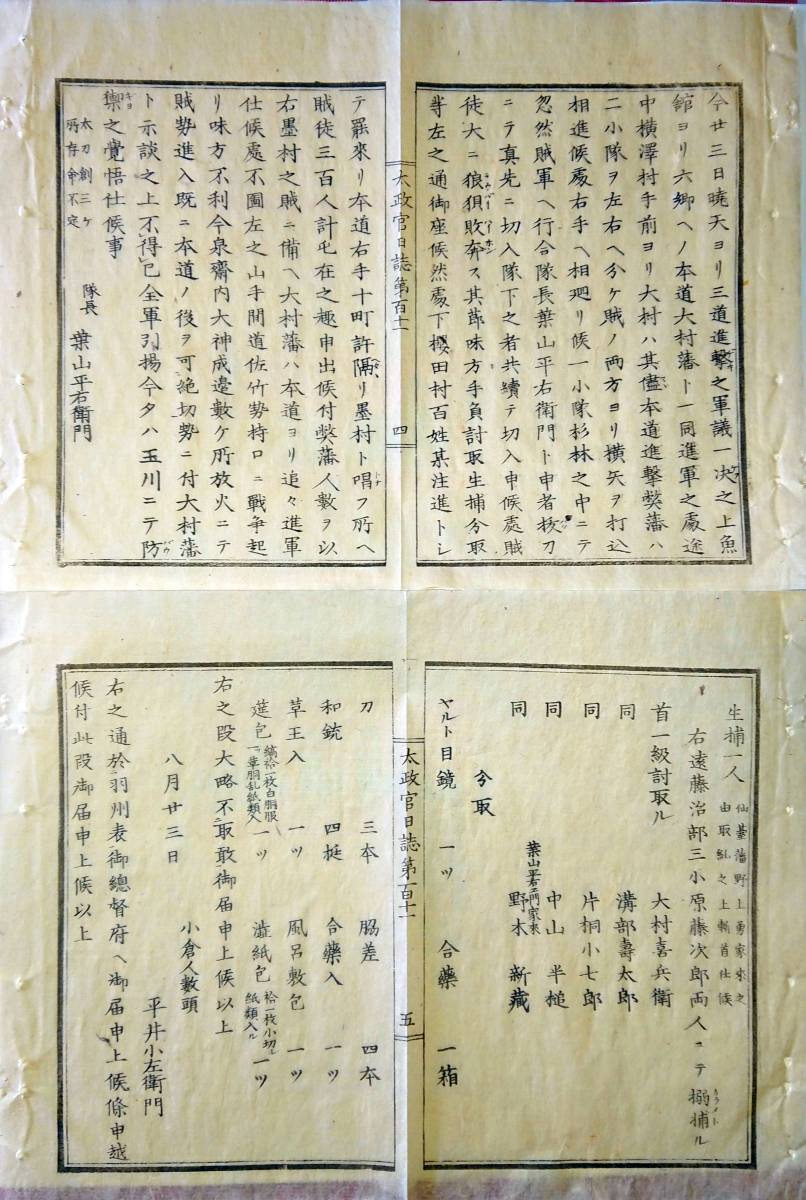 今廿三日曉天ヨリ三道進擊之軍議一决之上魚
舘ヨリ六鄉ヘノ本道大村藩ト一同進軍之處途
中橫澤村手前ヨリ大村ハ其儘本道進擊獘藩ハ
二小隊ヲ左右ヘ分ケ賊ノ兩方ヨリ橫矢ヲ打込
相進候處右手ヘ相廻リ候一小隊杉林之中ニテ
忽然賊軍ヘ行合隊長葉山平右衛門ト申者拔刀
ニテ真先ニ切入隊下之者共續テ切入申候處賊
徒大ニ狼狽敗奔ス其節味方手負討取生捕分取
等左之通御座候然處下櫻田村百姓某注進トシ
太政官日誌第百十一
四
テ罷來リ本道右手十町許隔リ墨村ト唱フ所ヘ
賊徒三百人計屯在之趣申出候付獘藩人數ヲ以
右墨村之賊ニ備ヘ大村藩ハ本道ヨリ追々進軍
仕候處不圖左之山手間道佐竹勢持口ニ戰争起
リ味方不利今泉齋內大神成邊數ケ所放火ニテ
賊勢進入既ニ本道ノ後ヲ可絕切勢ニ付大村藩
ト示談之上不得已全軍引揚今夕ハ玉川ニテ防
禦之覺悟仕候事
太刀創三ケ
所存命不定
隊長 葉山平右衛門
生捕一人
仙䑓藩野上勇家來之
由取糺之上斬首仕候
右遠藤治部三小原藤次郎両人ニテ搦捕ル
首一級討取ル 大村喜兵衛
同 溝部壽太郎
同 片桐小七郎
同 中山半槌
同
葉山平右衛門家來
野木新藏
分取
ヤルト目鏡 一ツ 合藥 一箱
太政官日誌第百十一
五
刀 三本 脇差 四本
和銃 四挺 合藥入 一ツ
草王入 一ツ 風呂敷包 一ツ
莚包
縞袷一枚白胴服
一章胴乱紙類入
一ツ 澁紙包
袷一枚小切
紙類入ル
一ツ
右之段大略不取敢御届申上候以上
八月廿三日
小倉人數頭
平井小左衛門
右之通於羽州表御總督府ヘ御届申上候條申越
候付此段御届申上候以上